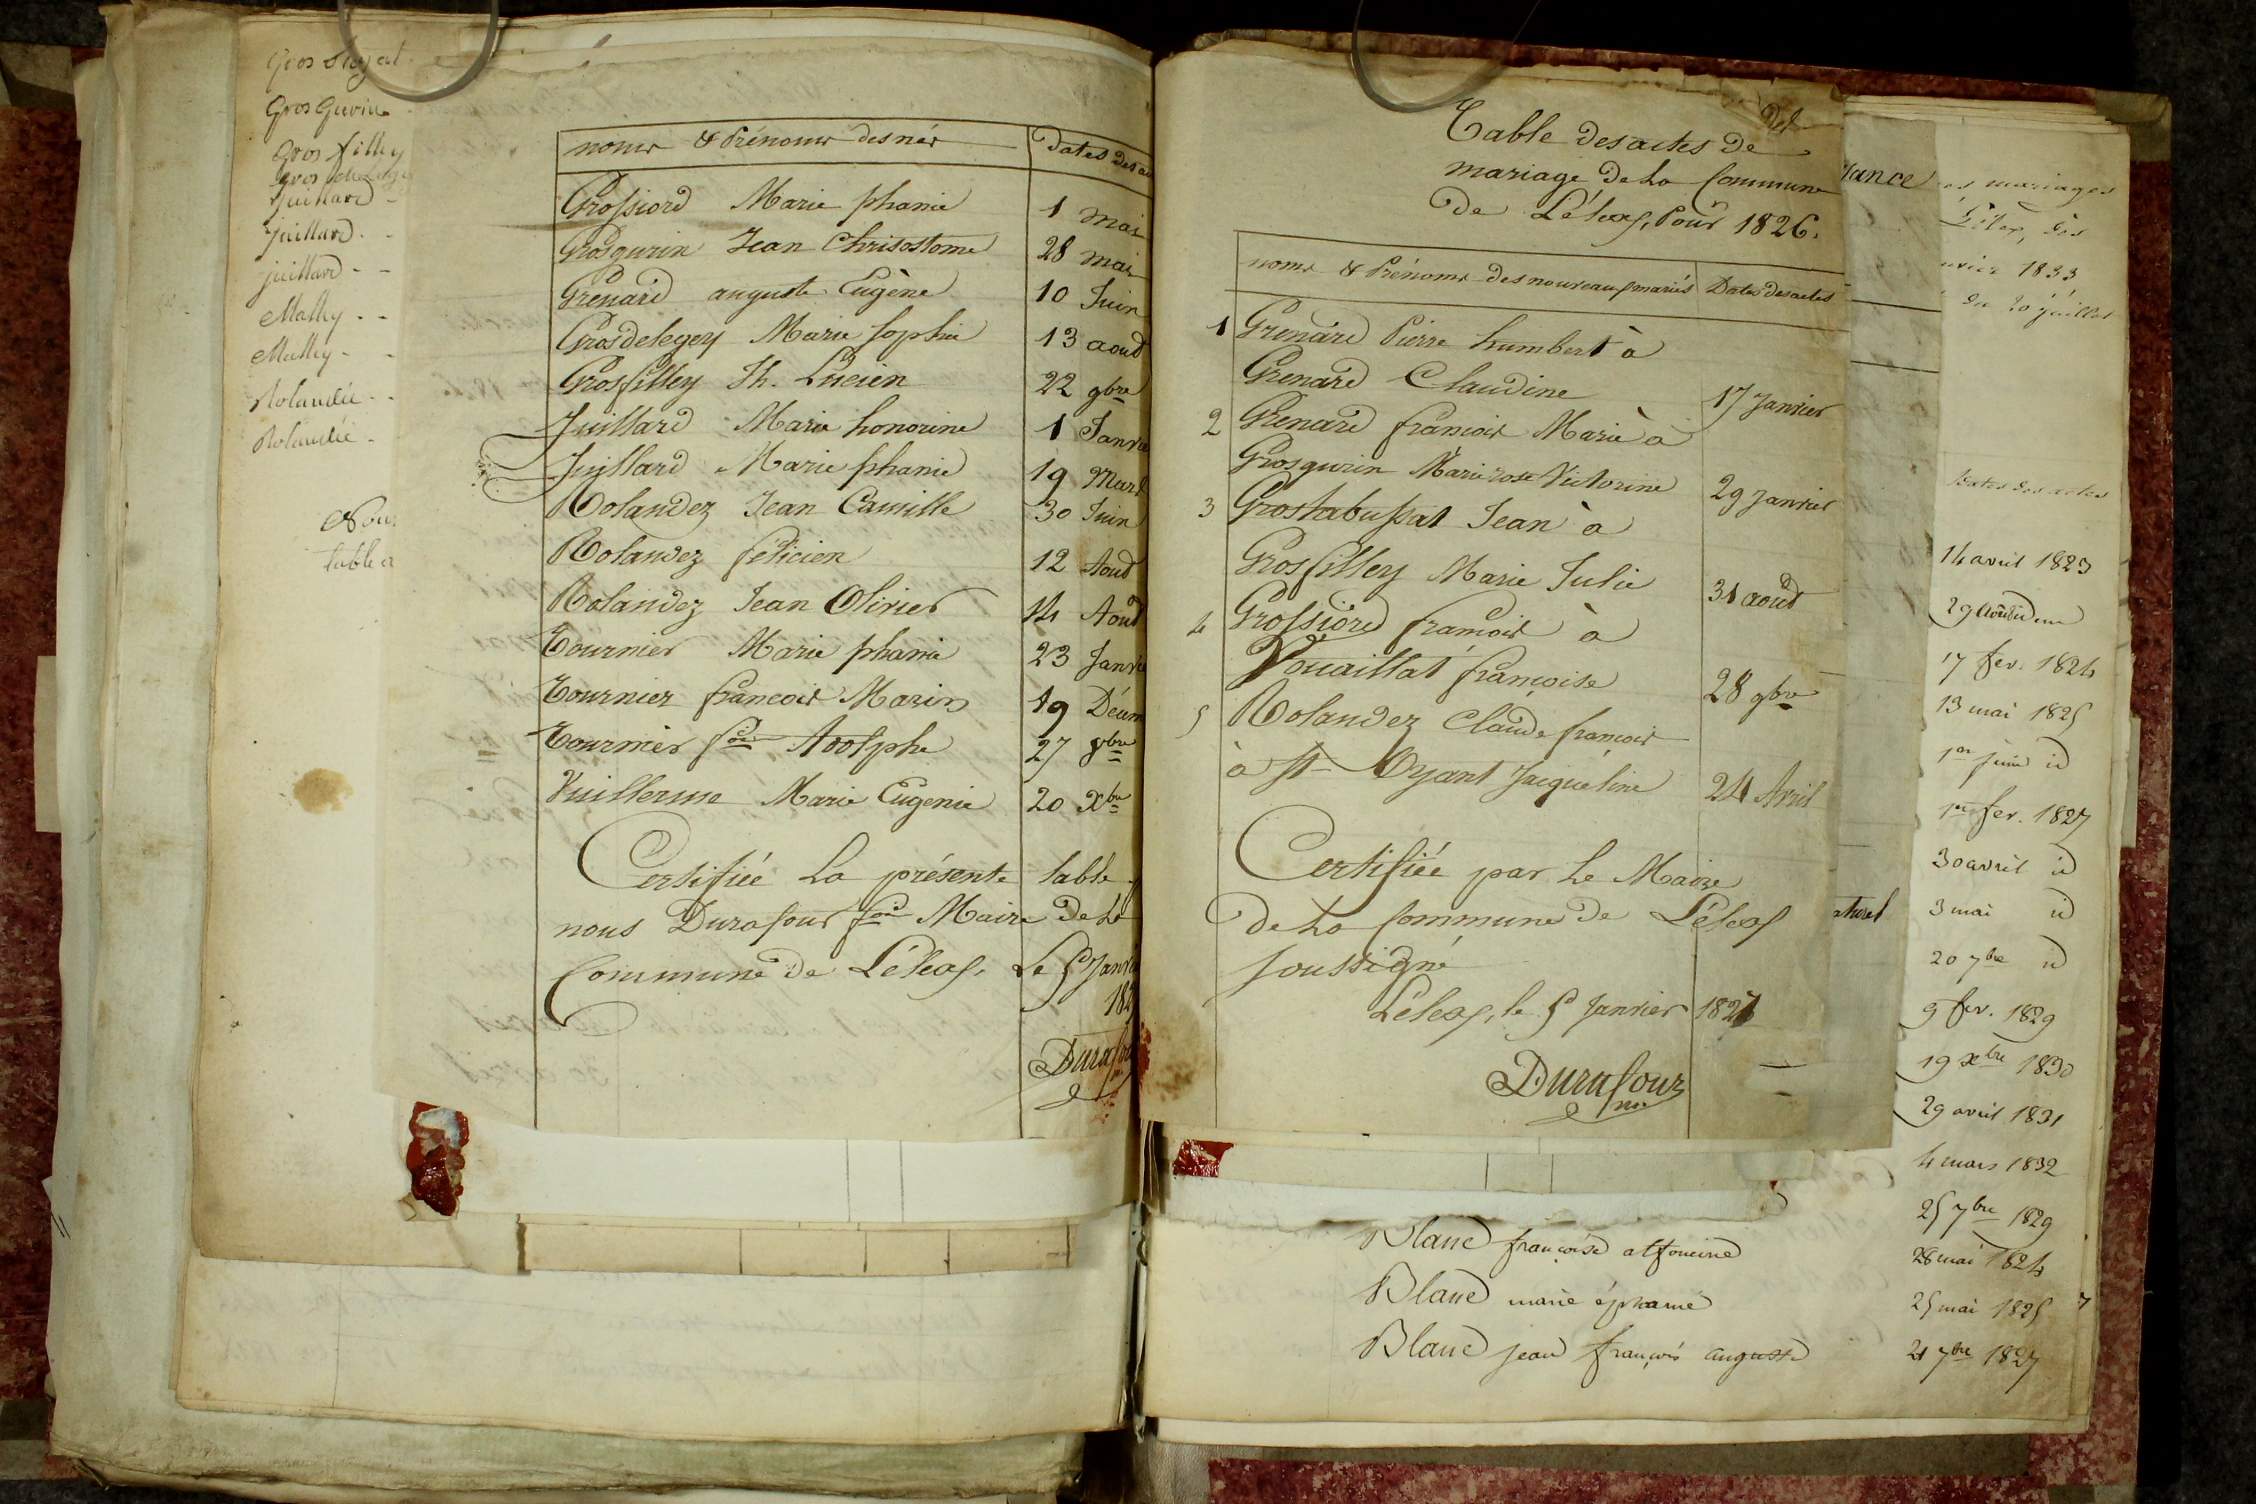 Gros Gurin
Gros filley
Juillard
Juillard
Juillard
Mathey
Mathey
Rolandez
Rolandez
table
noms & Prénoms des nés Dates des
Grossiord Marie phanie 1 mai
Grosgurin Jean Chrisostome 28 mai
Grenard auguste Eugène 10 Juin
Grosdelegey Marie Sophie 13 aoud
Grosfilley Jh. Lucien 22 9bre
Juillard Marie honorine 1 Janvie
Juillard Marie phanie 19 Mars
Rolandez Jean Camille 30 Juin
Rolandez félicien 12 Aoud
Rolandez Jean Olivier 14 Aoud
Tournier Marie phanie 23 Janvie
Tournier francois Marin 19 Décem
Tournier fois Adolphe 27 8bre
Vuillerme Marie Eugenie 20 Xbre
Certifiée La présente table
nous Durafour fois Maire de La
Commune de Lélex, Le 5 Janvie
182
Durafour
Table des actes de
mariage de La Commune
de Lélex, Pour 1826.
noms & Prénoms des nouveaux mariés Dates des actes
1 Grenard Pierre humbert à
Grenard Claudine 17 Janvier
2 Grenard francois Marie à
Grosgurin Marie rose Victorine 29 Janvier
3 Grostabussiat Jean à
Grosfilley Marie Julie 31 août
4 Grossiord francois à
Vouaillat françoise 28 9bre
5 Rolandez Claude francois
à St Oyant Jacqueline 24 Avril
Certifiée par Le Maire
de La Commune de Lélex
soussigné
Lélex, le 5 Janvier 1827
Durafour
mre
sance
aturel
mariages
Lélex, dès
1833
du 20 juillet
Dates des actes
14 avril 1823
29 août idem
17 fev. 1824
13 mai 1825
1er juin id
1er fev. 1827
30 avril id
3 mai id
20 7bre id
9 fev. 1829
19 Xbre 1830
29 avril 1831
4 mars 1832
25 7bre 1829
Blanc françoise alfoncine 28 mai 1824
Blanc marie éphanie 25 mai 1825
Blanc jean françois auguste 21 7bre 1827